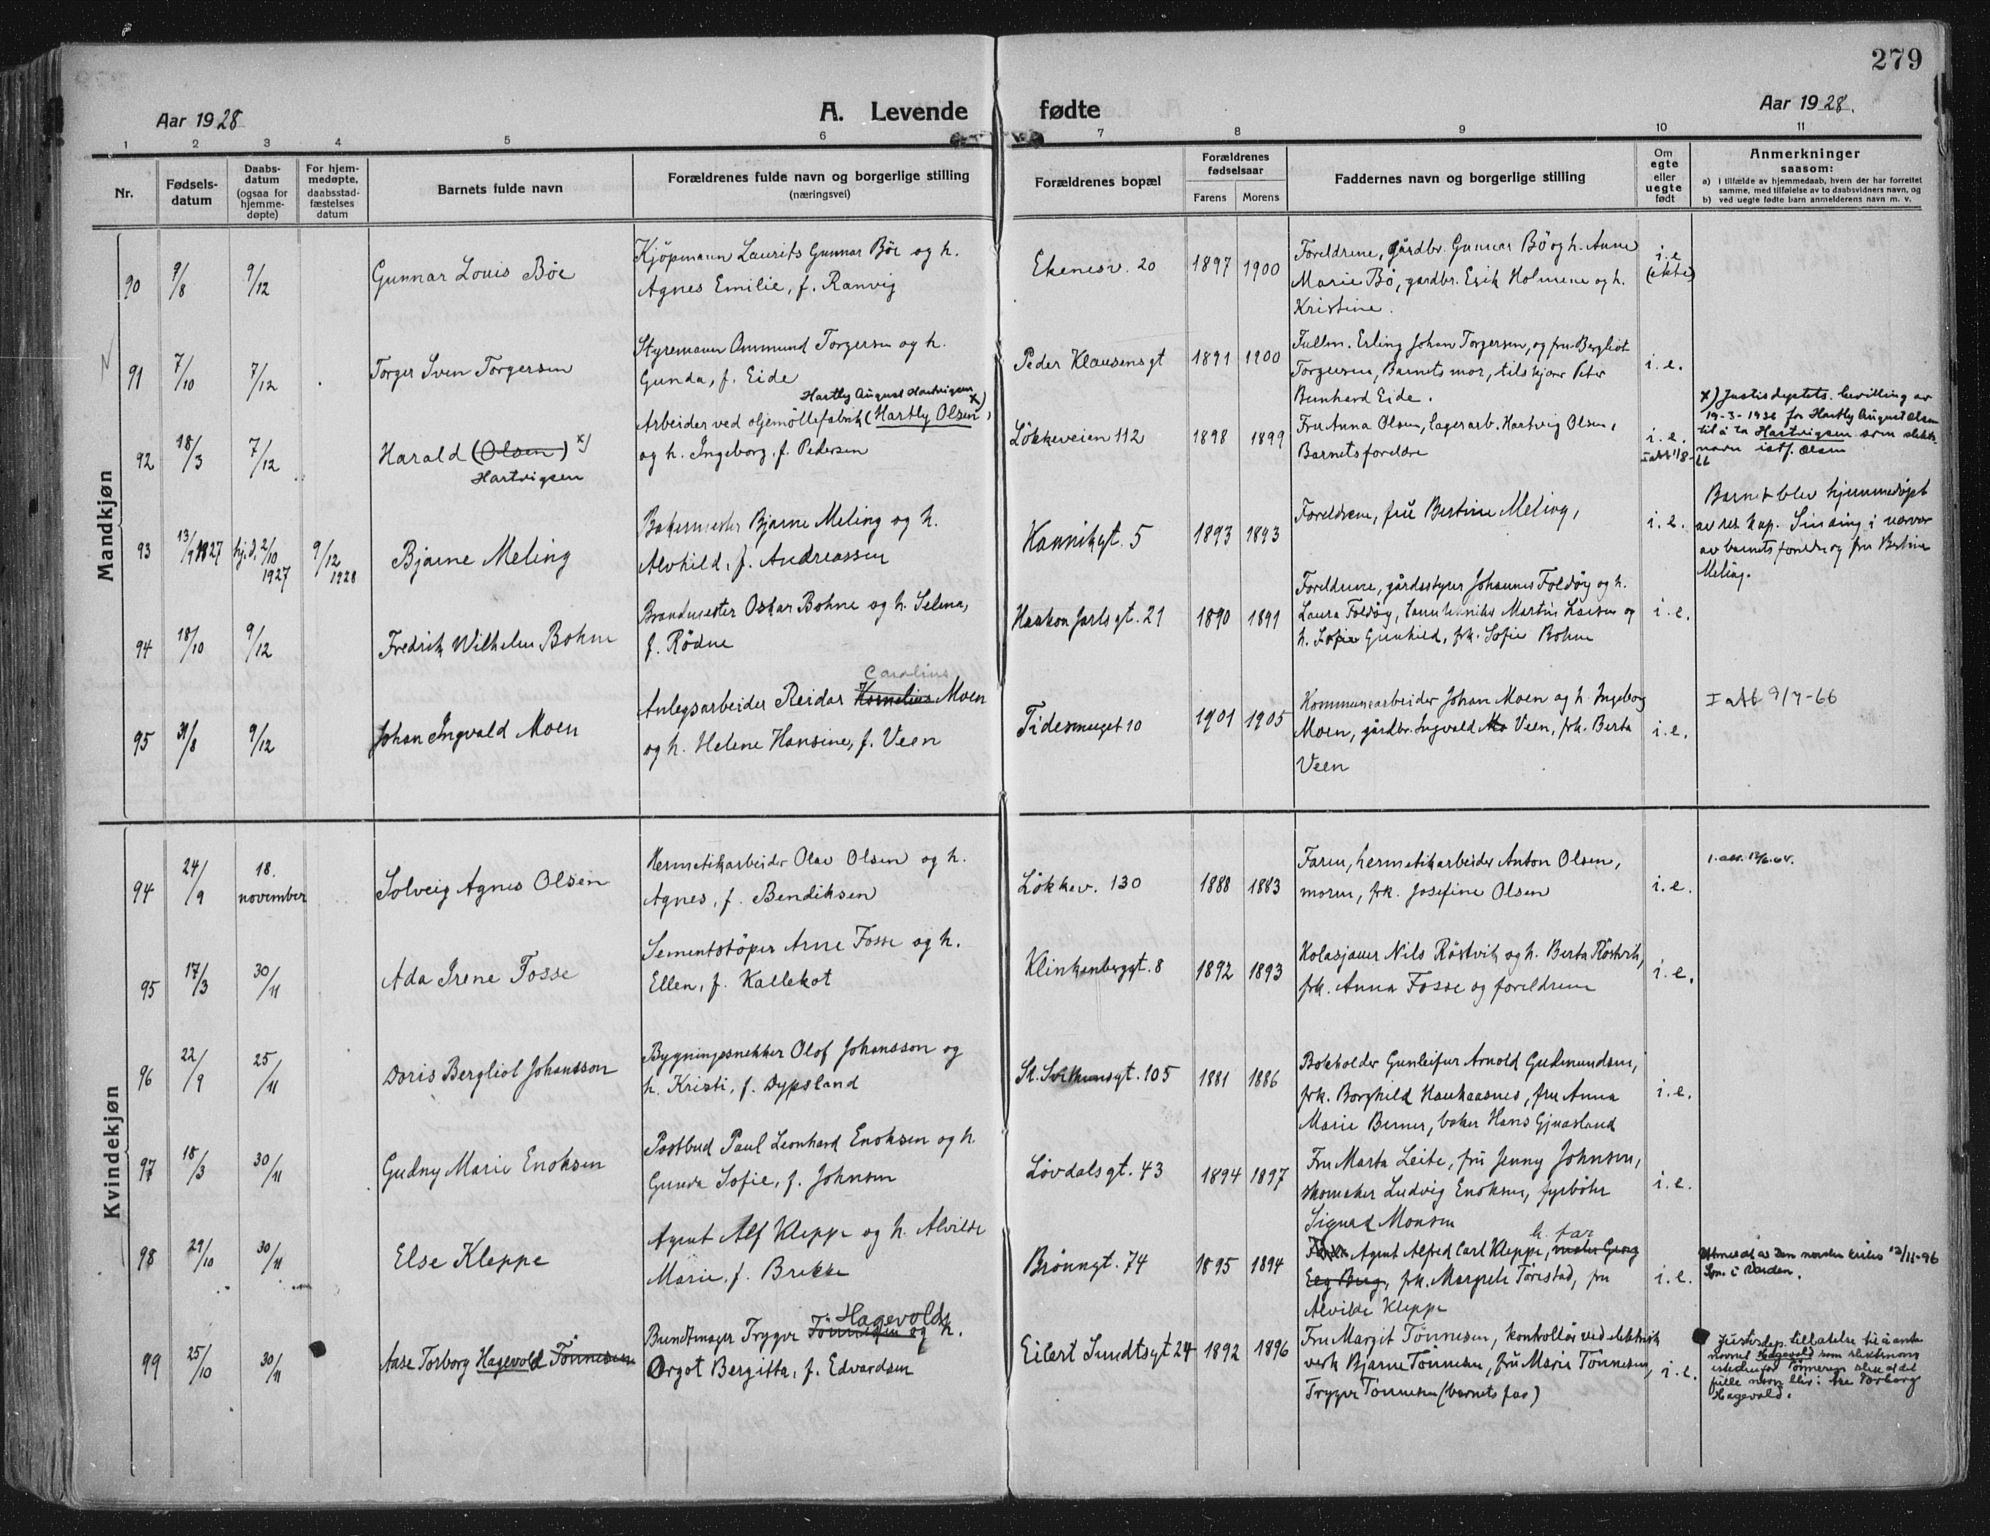 279
Aar 1928
A. Levende fødte
Aar 1928.
1 2 3 4 5 6 7 8 9 10 11
Nr.
Fødsels-
datum
Daabs-
datum
(ogsaa for
hjemme-
døpte)
For hjem-
medøpte,
daabsstad-
fæstelses
datum
Barnets fulde navn
Forældrenes fulde navn og borgerlige stilling
(næringsvei)
Forældrenes bopæl
Forældrenes
fødselsaar
Farens Morens
Faddernes navn og borgerlige stilling
Om
egte
eller
uegte
født
Anmerkninger
saasom:
a) I tilfælde av hjemmedaab, hvem der har forrettet
samme, med tilføielse av to daabsvidners navn, og
b) ved uegte fødte barn anmelderens navn m. v.
Mandkjøn
90 9/8 9/12 Gunnar Louis Bøe
Kjöpmann Laurits Gunnar Bøe og h.
Agnes Emilie, f. Ranvig
Ekenesv. 20 1897 1900
Foreldrene, gårdbr. Gunnar Bö og h. Anne
Marie Bö, gardbr. Erik Holmene og h.
Kristine.
i. e
(ekte)
91 7/10 7/12 Torger Sven Torgersen
Styremann Ommund Torgersen og h.
Gunda, f. Eide
Peder Klausensgt 1891 1900
Fullm. Erling Johan Torgersen, og fru Bergliot
Torgersen, Barnets mor, Peter
Bernhard Eide.
i. e.
92 18/3 7/12 Harald (Olsen) x)
Hartvigsen
Hartly August Hartvigsen x)
Arbeider ved oljemöllefabrik (Hartly Olsen)
og h. Ingeborg, f. Pedersen
Lökkeveien 112 1898 1899
Fru Anna Olsen, lagerarb. Hartvig Olsen,
Barnets foreldre
i. e.
x) Justisdeptets. bevilling av
19-3-1936 for Hartly August Olsen
til å ta Hartvigsen som slekts-
navn istf. Olsen
93 13/9 1927 hj.d. 2/10 1927 9/12 1928 Bjarne Meling
Bakermester Bjarne Meling og h.
Alvhild, f. Andreassen
Kannikgt. 5 1893 1893
Foreldrene, fru Bertine Meling,
i. e.
Barnet blev hjemmedöpt
av res. kap. Sinding i nærvær
av barnets foreldre og fru Bertine
Meling.
94 18/10 9/12 Fredrik Wilhelm Bohne
Brandmester Oskar Bohne og h. Selma,
f. Rödne
Haakon Jarls gt. 21 1890 1891
Foreldrene, gårdsstyrer Johannes Foldöy og h.
Laura Foldöy, Martin Larsen og
h. Gunhild, frk. Sofie Bohne
i. e.
95 31/8 9/12 Johan Ingvald Moen
Carolius
Anlegsarbeider Reidar Kornelius Moen
og h. Helene Hansine, f. Veen
Tidesmuget 10 1901 1905
Kommunearbeider Johan Moen og h. Ingeborg
Moen, gårdbr. Ingvald Veen, frk. Berta
Veen
i. e.
I att 9/7-66
Kvindekjøn
94 24/9 18. november Solveig Agnes Olsen
Hermetikarbeider Olav Olsen og h.
Agnes, f. Bendiksen
Lökkev. 130 1888 1883
Faren, hermetikarbeider Anton Olsen,
moren, frk. Josefine Olsen
i. e.
95 17/3 30/11 Ada Irene Fosse
Sementstöper Arne Fosse og h.
Ellen, f. Kallekot
Klinkenberggt. 8 1892 1893
Kolasjauer Nils Röstvik og h. Berta Röstvik,
frk. Anna Fosse og foreldrene
i. e.
96 22/9 25/11 Doris Bergliot Johansson
Bygningssnekker Olof Johansson og
h. Kristi, f. Dypsland
St. Svithunsgt. 105 1881 1886
Bokholder Gunleifur Arnold Gudmundsen,
frk. Borghild Haukaasnes, fru Anna
Marie Berner, baker Hans Gjuasland
i. e.
97 18/3 30/11 Gudny Marie Enoksen
Postbud Paul Leonhard Enoksen og h
Gunda Sofie, f. Johnsen
Lövdalsgt. 43 1894 1897
Fru Marta Leite, fru Jenny Johnsen,
skomaker Ludvig Enoksen, fyrböter
Sigurd Monsen
i. e.
98 29/10 30/11 Else Kleppe
Agent Alf Kleppe og h. Alvilde
Marie, f. Brekke
Brönngt. 74 1895 1894
b. far
Agent Alfred Carl Kleppe, Georg
Eeg Berg, frk. Margrete Törestad, fru
Alvilde Kleppe
i. e.
Utmeldt av den norske kirke 12/11-96
Som i Varden.
99 25/10 30/11 Aase Torborg Hagevold Tönnesen
Hagevold
Buntmager Trygve Tönnesen og h.
Orgot Bergitta, f. Edvardsen
Eilert Sundtsgt 24 1892 1896
Fru Margit Tönnesen, kontrollör ved elektrisk
verk Bjarne Tönnesen, fru Marie Tönnesen,
Trygve Tönnesen (barnets far)
i. e.
Justisdep. tillatelse til å anta
navnet Hagevold som slektsnavn
istedenfor Tönnesen slik at det
fulle navn blir: Åse Torborg
Hagevold.